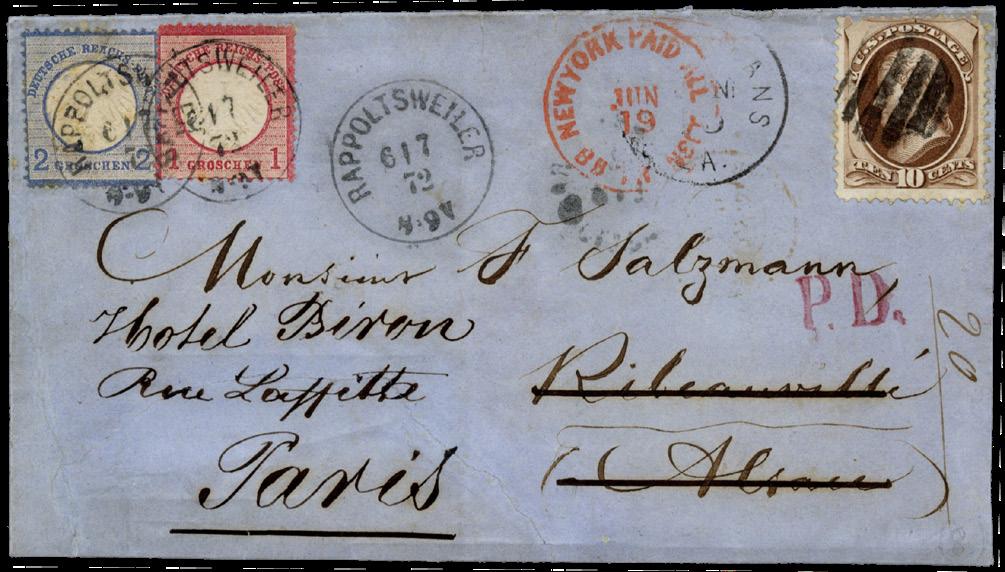 DEUTSCHE REICHS
2 GROSCHEN 2
GROSCHEN 1
RAPPOLTSWEILER
17
72
RAPPOLTSWEILER
6 I 7
72
8-9V
NEW YORK PAID ALL
JUN
19
ANS
A.
U.S. POSTAGE
TEN 10 CENTS
Monsieur F Salzmann
P.D.
Hotel Biron
Ribeauvillé
20
Rue Laffitte
(Alsace)
Paris